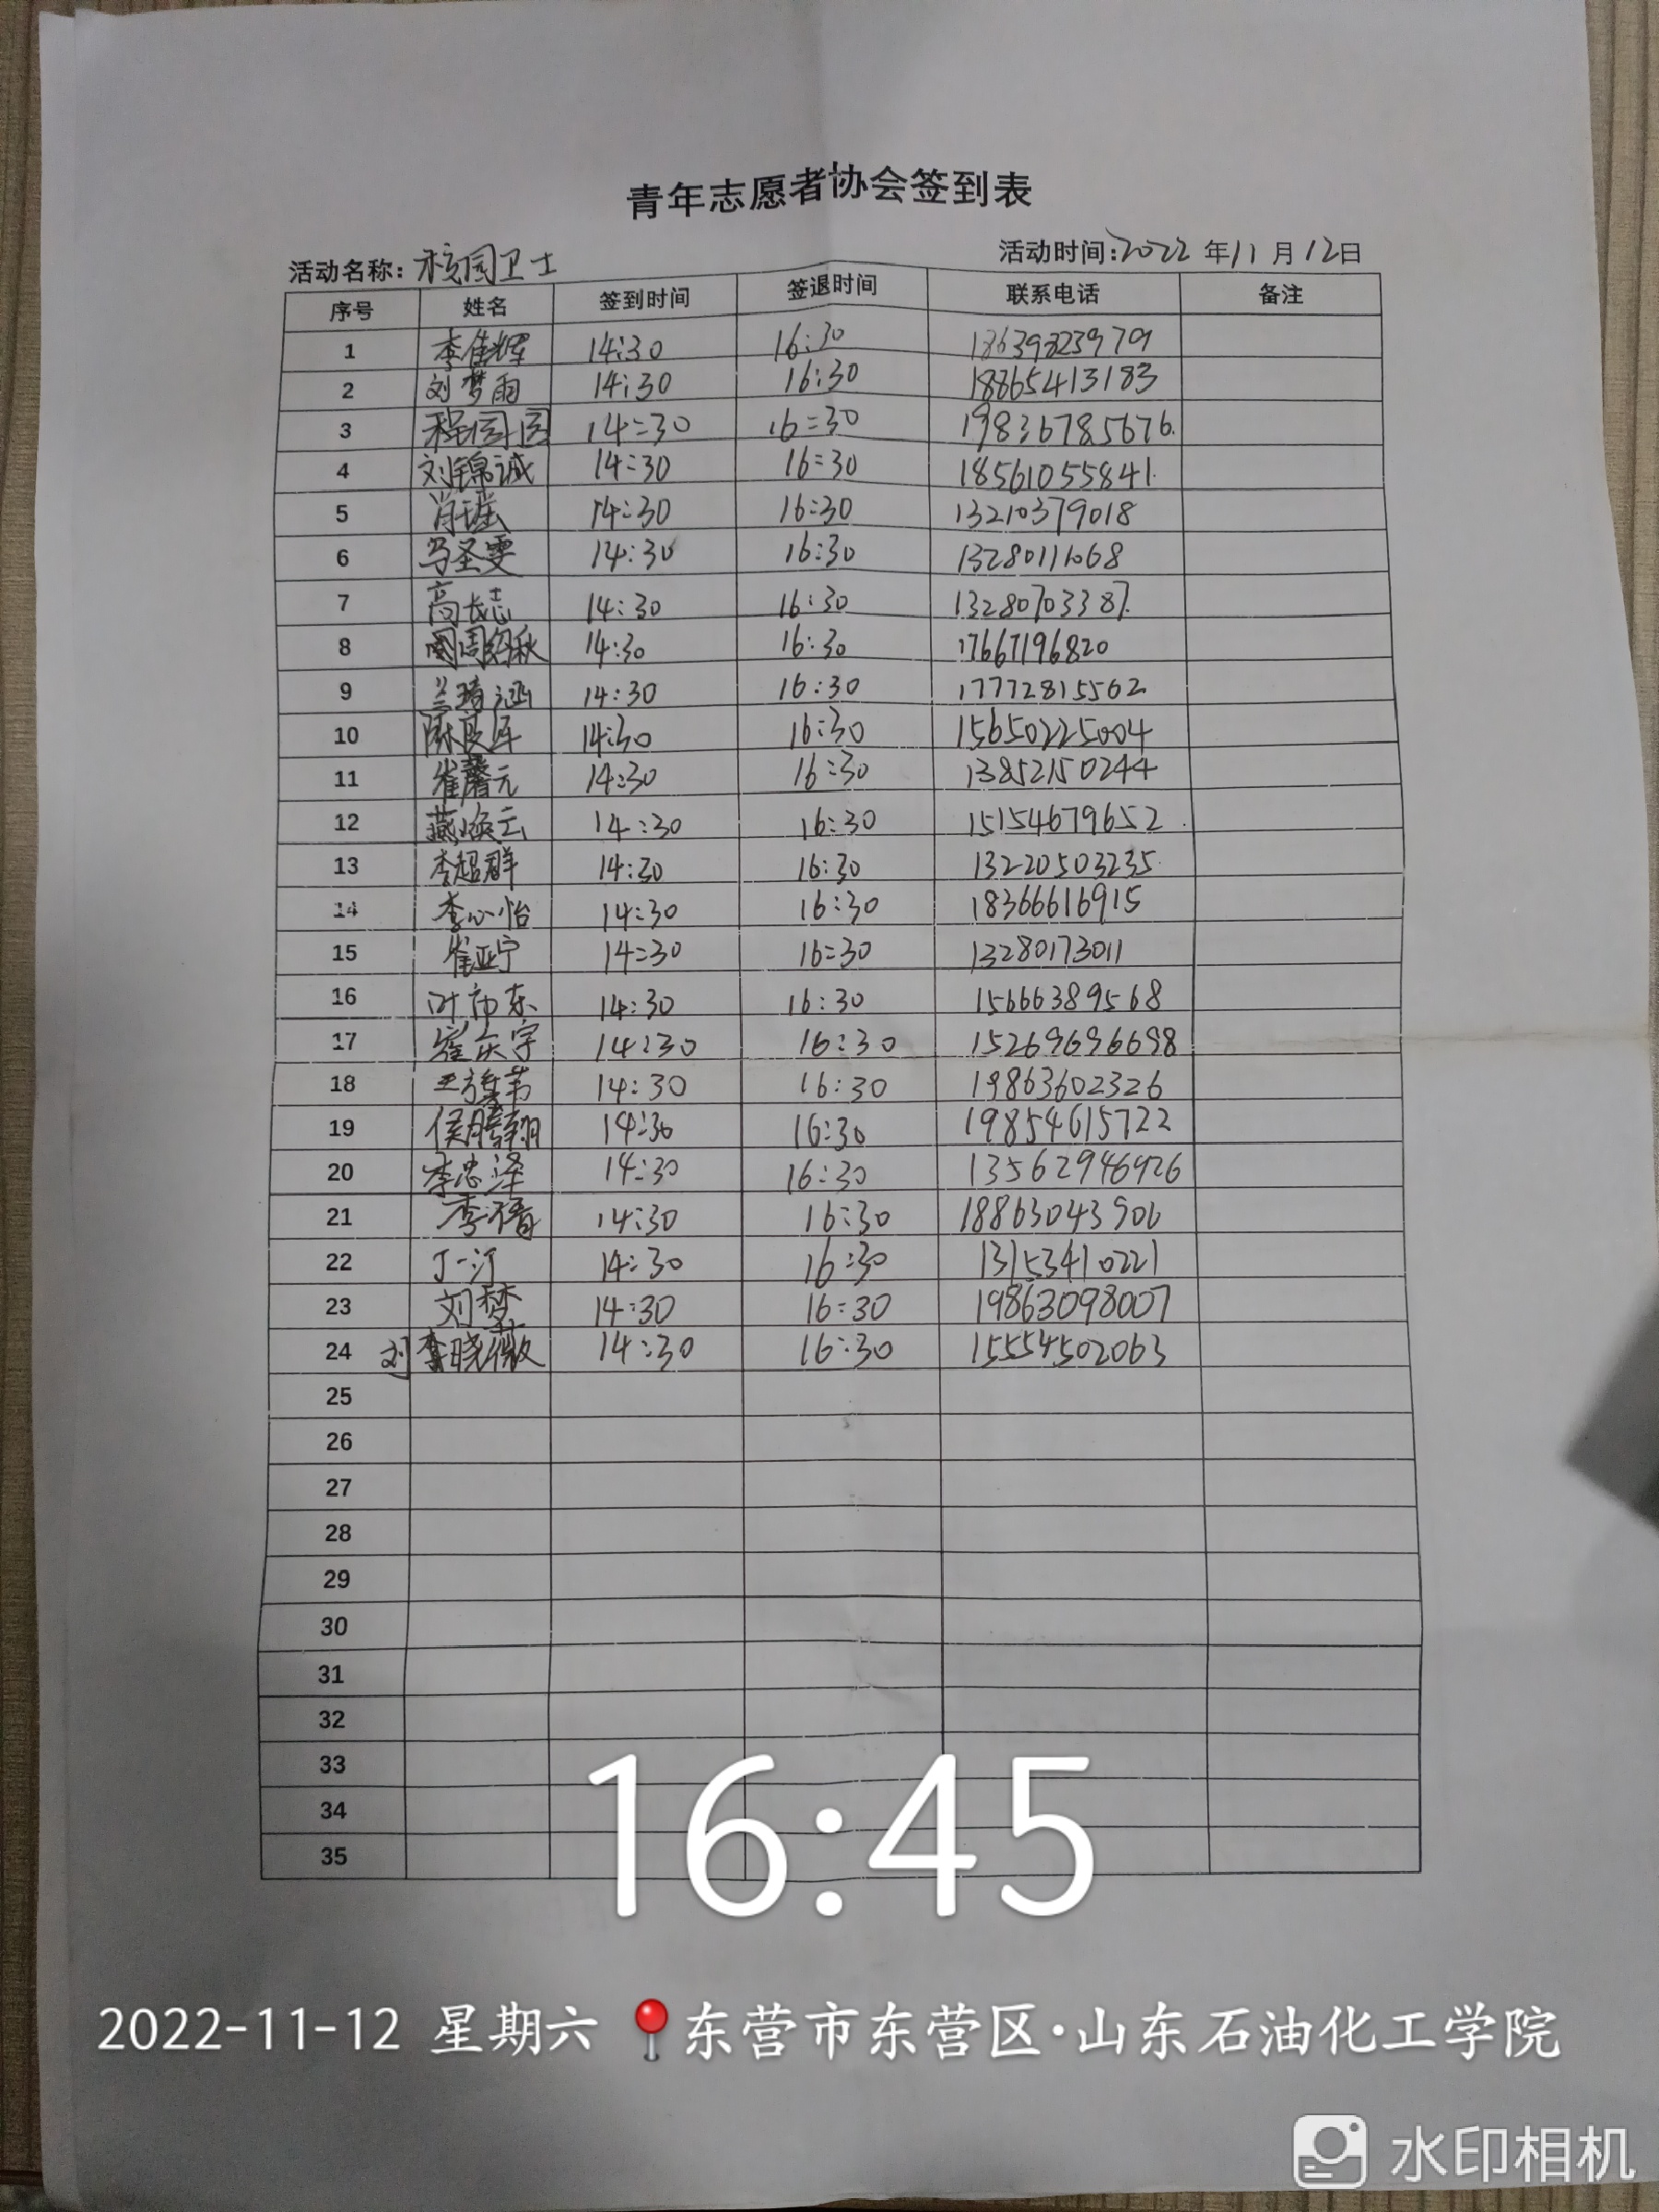 青年志愿者协会签到表
活动名称:校园卫士 活动时间:2022年11月12日
序号 姓名 签到时间 签退时间 联系电话 备注
1 李佳辉 14:30 16:30 18639823979
2 刘梦雨 14:30 16:30 18865413183
3 程园园 14:30 16:30 19836785676
4 刘锦诚 14:30 16:30 18561055841
5 肖瑶 14:30 16:30 13210379018
6 马圣雯 14:30 16:30 13280111068
7 高长志 14:30 16:30 13280703387
8 周绍秋 14:30 16:30 17667196820
9 兰琦涵 14:30 16:30 17772815562
10 14:30 16:30 15650225004
11 崔馨元 14:30 16:30 13852150244
12 燕焕云 14:30 16:30 15154679652
13 李超群 14:30 16:30 13220503235
14 李心怡 14:30 16:30 18366616915
15 崔亚宁 14:30 16:30 13280173011
16 叶市东 14:30 16:30 15666389568
17 崔庆宇 14:30 16:30 15269696698
18 14:30 16:30 19863602326
19 侯腾翔 14:30 16:30 19854615722
20 李忠泽 14:30 16:30 13562946926
21 李倩 14:30 16:30 18863043906
22 丁一汀 14:30 16:30 13153410221
23 刘梦 14:30 16:30 19863098007
24 刘晓薇 14:30 16:30 15554502063
25
26
27
28
29
30
31
32
33
34
35
16:45
2022-11-12 星期六 东营市东营区·山东石油化工学院
水印相机